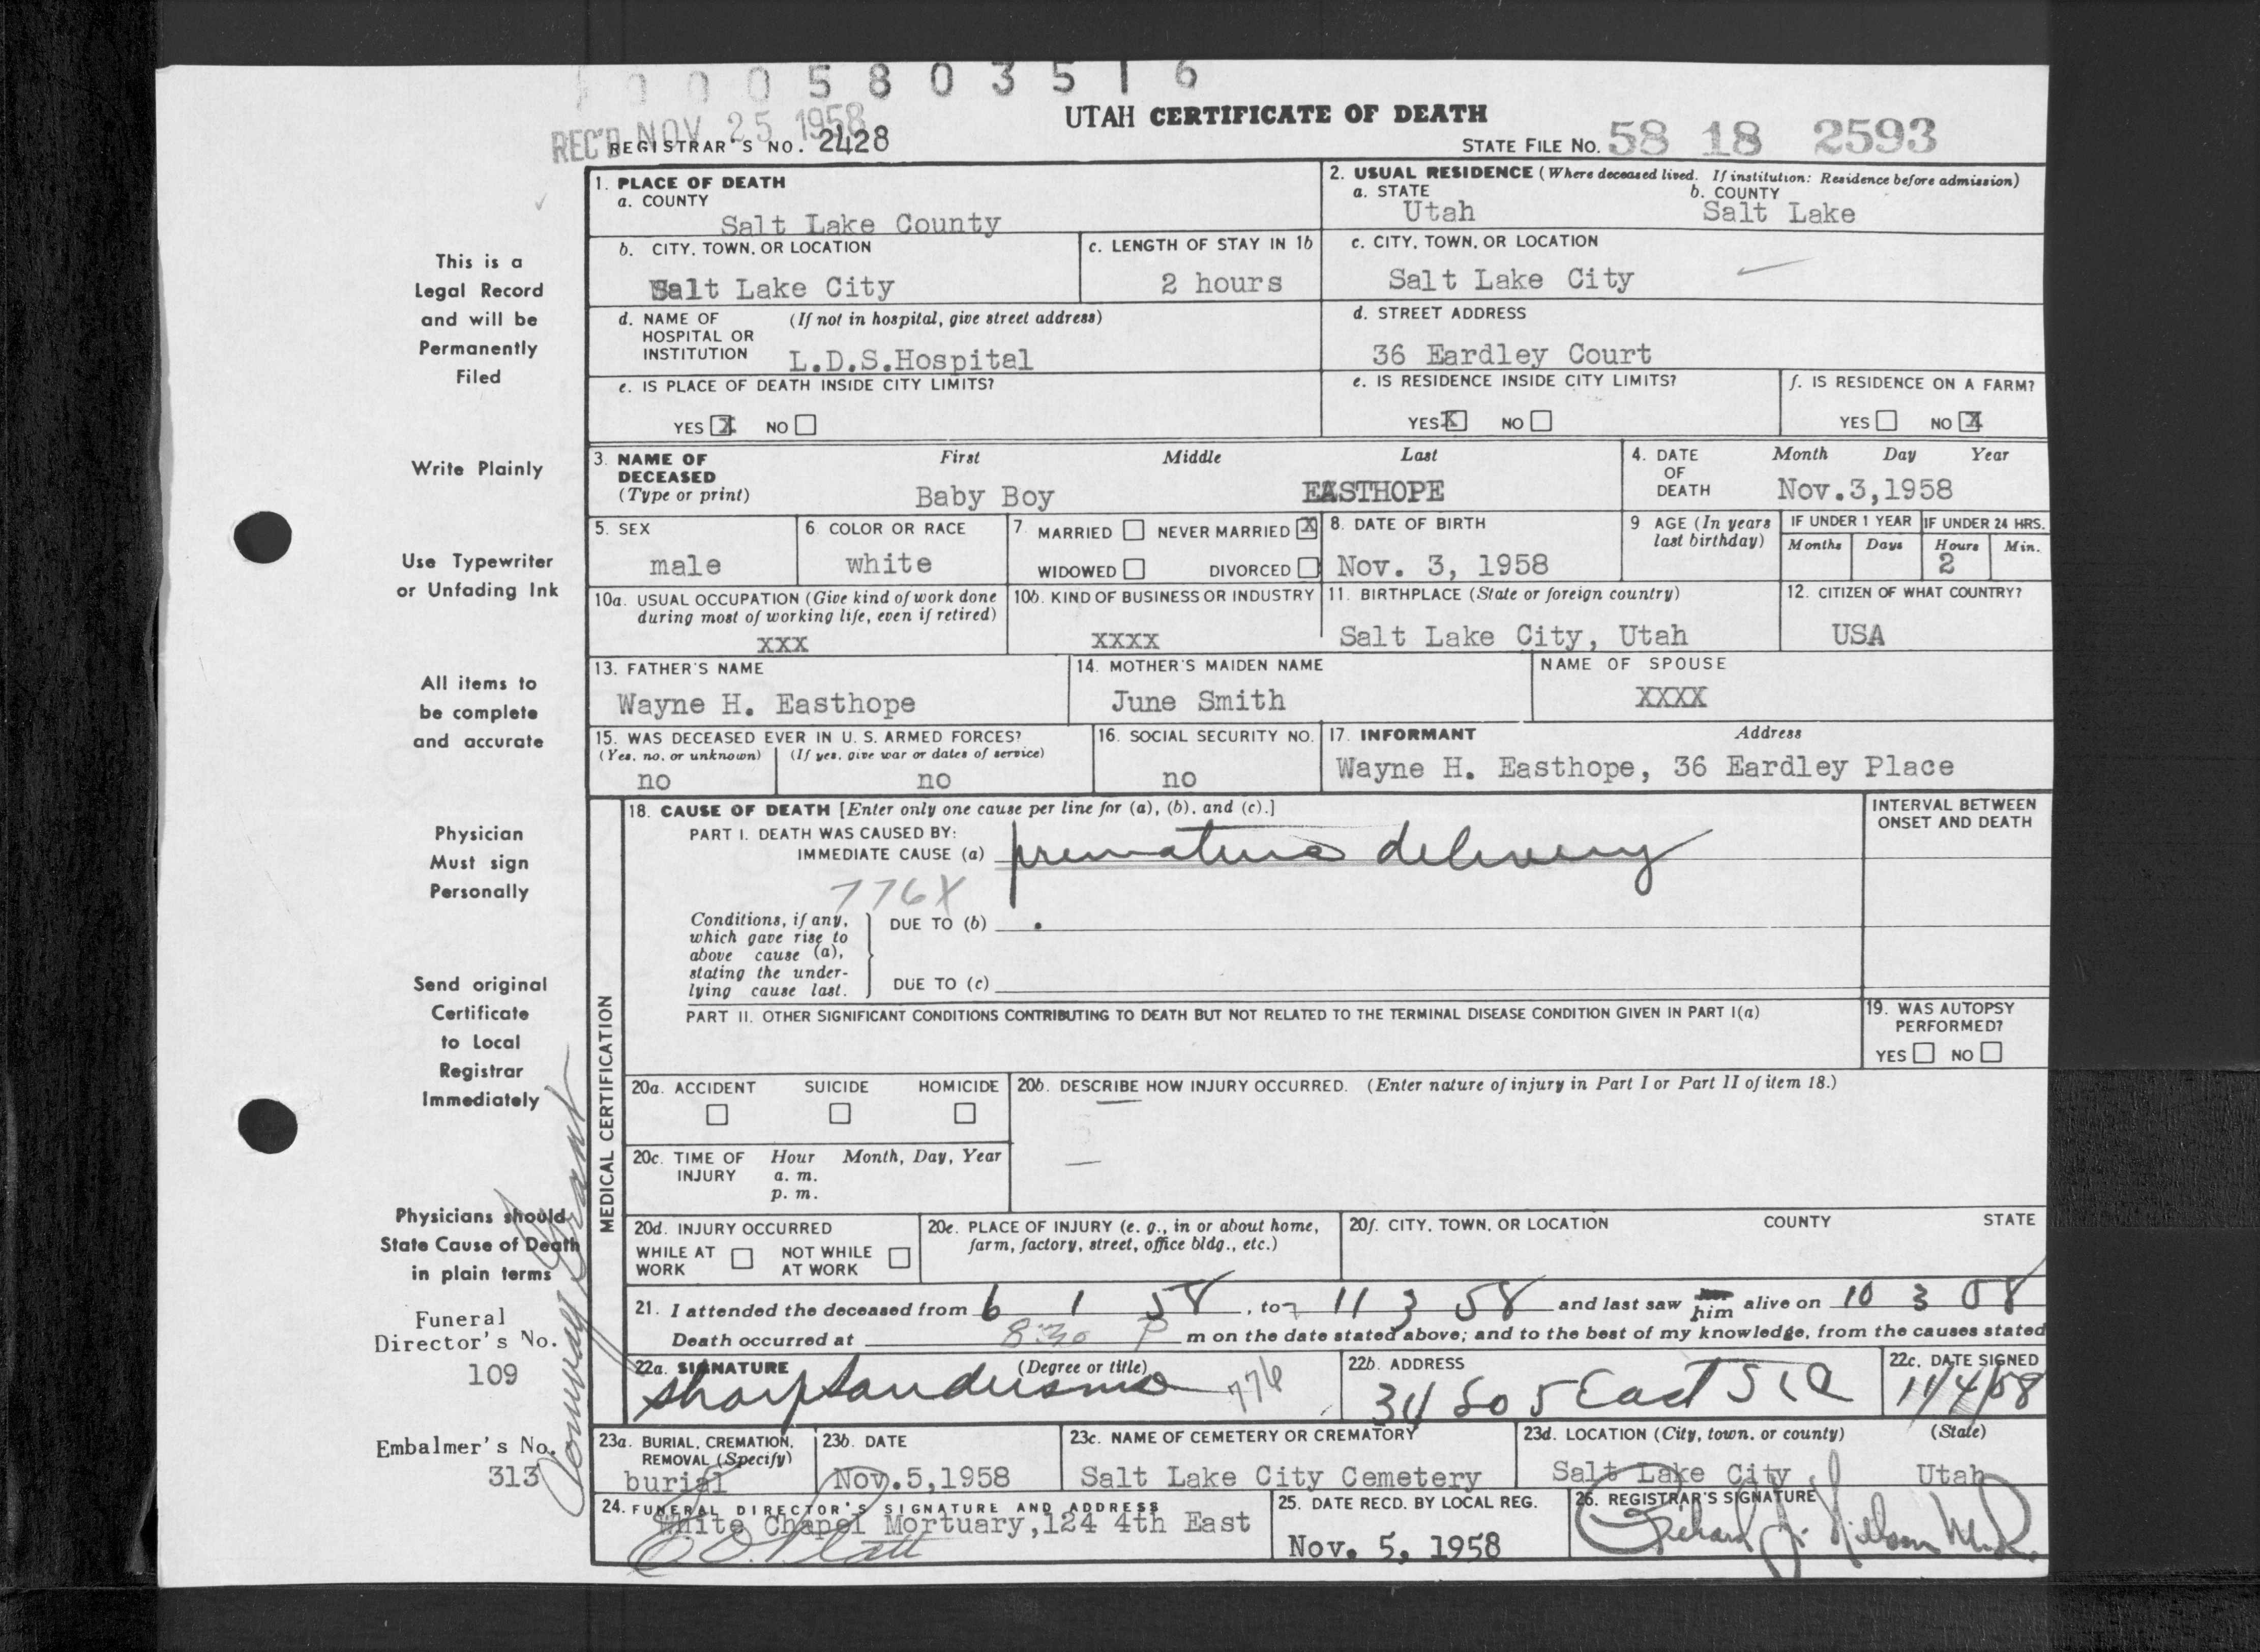 0 0 0 5 8 0 3 5 1 6
REC'D NOV 25 1958
UTAH CERTIFICATE OF DEATH
REGISTRAR'S NO. 2428
STATE FILE NO. 58 18 2593
1. PLACE OF DEATH
a. COUNTY
Salt Lake County
2. USUAL RESIDENCE (Where deceased lived. If institution: Residence before admission)
a. STATE b. COUNTY
Utah Salt Lake
b. CITY, TOWN, OR LOCATION
Salt Lake City
c. LENGTH OF STAY IN 1b
2 hours
c. CITY, TOWN, OR LOCATION
Salt Lake City
d. NAME OF (If not in hospital, give street address)
HOSPITAL OR
INSTITUTION L.D.S.Hospital
d. STREET ADDRESS
36 Eardley Court
e. IS PLACE OF DEATH INSIDE CITY LIMITS?
YES X NO
e. IS RESIDENCE INSIDE CITY LIMITS?
YES X NO
f. IS RESIDENCE ON A FARM?
YES NO X
3. NAME OF First Middle Last
DECEASED
(Type or print) Baby Boy EASTHOPE
4. DATE Month Day Year
OF
DEATH Nov.3,1958
5. SEX
male
6. COLOR OR RACE
white
7. MARRIED NEVER MARRIED X
WIDOWED DIVORCED
8. DATE OF BIRTH
Nov. 3, 1958
9 AGE (In years
last birthday)
IF UNDER 1 YEAR IF UNDER 24 HRS.
Months Days Hours Min.
2
10a. USUAL OCCUPATION (Give kind of work done
during most of working life, even if retired)
XXX
10b. KIND OF BUSINESS OR INDUSTRY
XXXX
11. BIRTHPLACE (State or foreign country)
Salt Lake City, Utah
12. CITIZEN OF WHAT COUNTRY?
USA
13. FATHER'S NAME
Wayne H. Easthope
14. MOTHER'S MAIDEN NAME
June Smith
NAME OF SPOUSE
XXXX
15. WAS DECEASED EVER IN U. S. ARMED FORCES?
(Yes, no, or unknown) (If yes, give war or dates of service)
no no
16. SOCIAL SECURITY NO.
no
17. INFORMANT Address
Wayne H. Easthope, 36 Eardley Place
MEDICAL CERTIFICATION
18. CAUSE OF DEATH [Enter only one cause per line for (a), (b), and (c).]
PART I. DEATH WAS CAUSED BY:
IMMEDIATE CAUSE (a) premature delivery
776X
Conditions, if any,
which gave rise to
above cause (a),
stating the under-
lying cause last.
DUE TO (b)
DUE TO (c)
INTERVAL BETWEEN
ONSET AND DEATH
PART II. OTHER SIGNIFICANT CONDITIONS CONTRIBUTING TO DEATH BUT NOT RELATED TO THE TERMINAL DISEASE CONDITION GIVEN IN PART I(a)
19. WAS AUTOPSY
PERFORMED?
YES NO
20a. ACCIDENT SUICIDE HOMICIDE
20b. DESCRIBE HOW INJURY OCCURRED. (Enter nature of injury in Part I or Part II of item 18.)
20c. TIME OF Hour Month, Day, Year
INJURY a. m.
p. m.
20d. INJURY OCCURRED
WHILE AT NOT WHILE
WORK AT WORK
20e. PLACE OF INJURY (e. g., in or about home,
farm, factory, street, office bldg., etc.)
20f. CITY, TOWN, OR LOCATION COUNTY STATE
21. I attended the deceased from 6 1 58, to 11 3 58 and last saw him alive on 10 3 58
Death occurred at 8:30 P m on the date stated above; and to the best of my knowledge, from the causes stated
22a. SIGNATURE (Degree or title)
776
22b. ADDRESS
34 So 5 East SLC
22c. DATE SIGNED
11/4/58
23a. BURIAL, CREMATION,
REMOVAL (Specify)
burial
23b. DATE
Nov.5,1958
23c. NAME OF CEMETERY OR CREMATORY
Salt Lake City Cemetery
23d. LOCATION (City, town, or county) (State)
Salt Lake City Utah
24. FUNERAL DIRECTOR'S SIGNATURE AND ADDRESS
White Chapel Mortuary,124 4th East
25. DATE RECD. BY LOCAL REG.
Nov. 5, 1958
26. REGISTRAR'S SIGNATURE
This is a
Legal Record
and will be
Permanently
Filed
Write Plainly
Use Typewriter
or Unfading Ink
All items to
be complete
and accurate
Physician
Must sign
Personally
Send original
Certificate
to Local
Registrar
Immediately
Physicians should
State Cause of Death
in plain terms
Funeral
Director's No.
109
Embalmer's No.
313